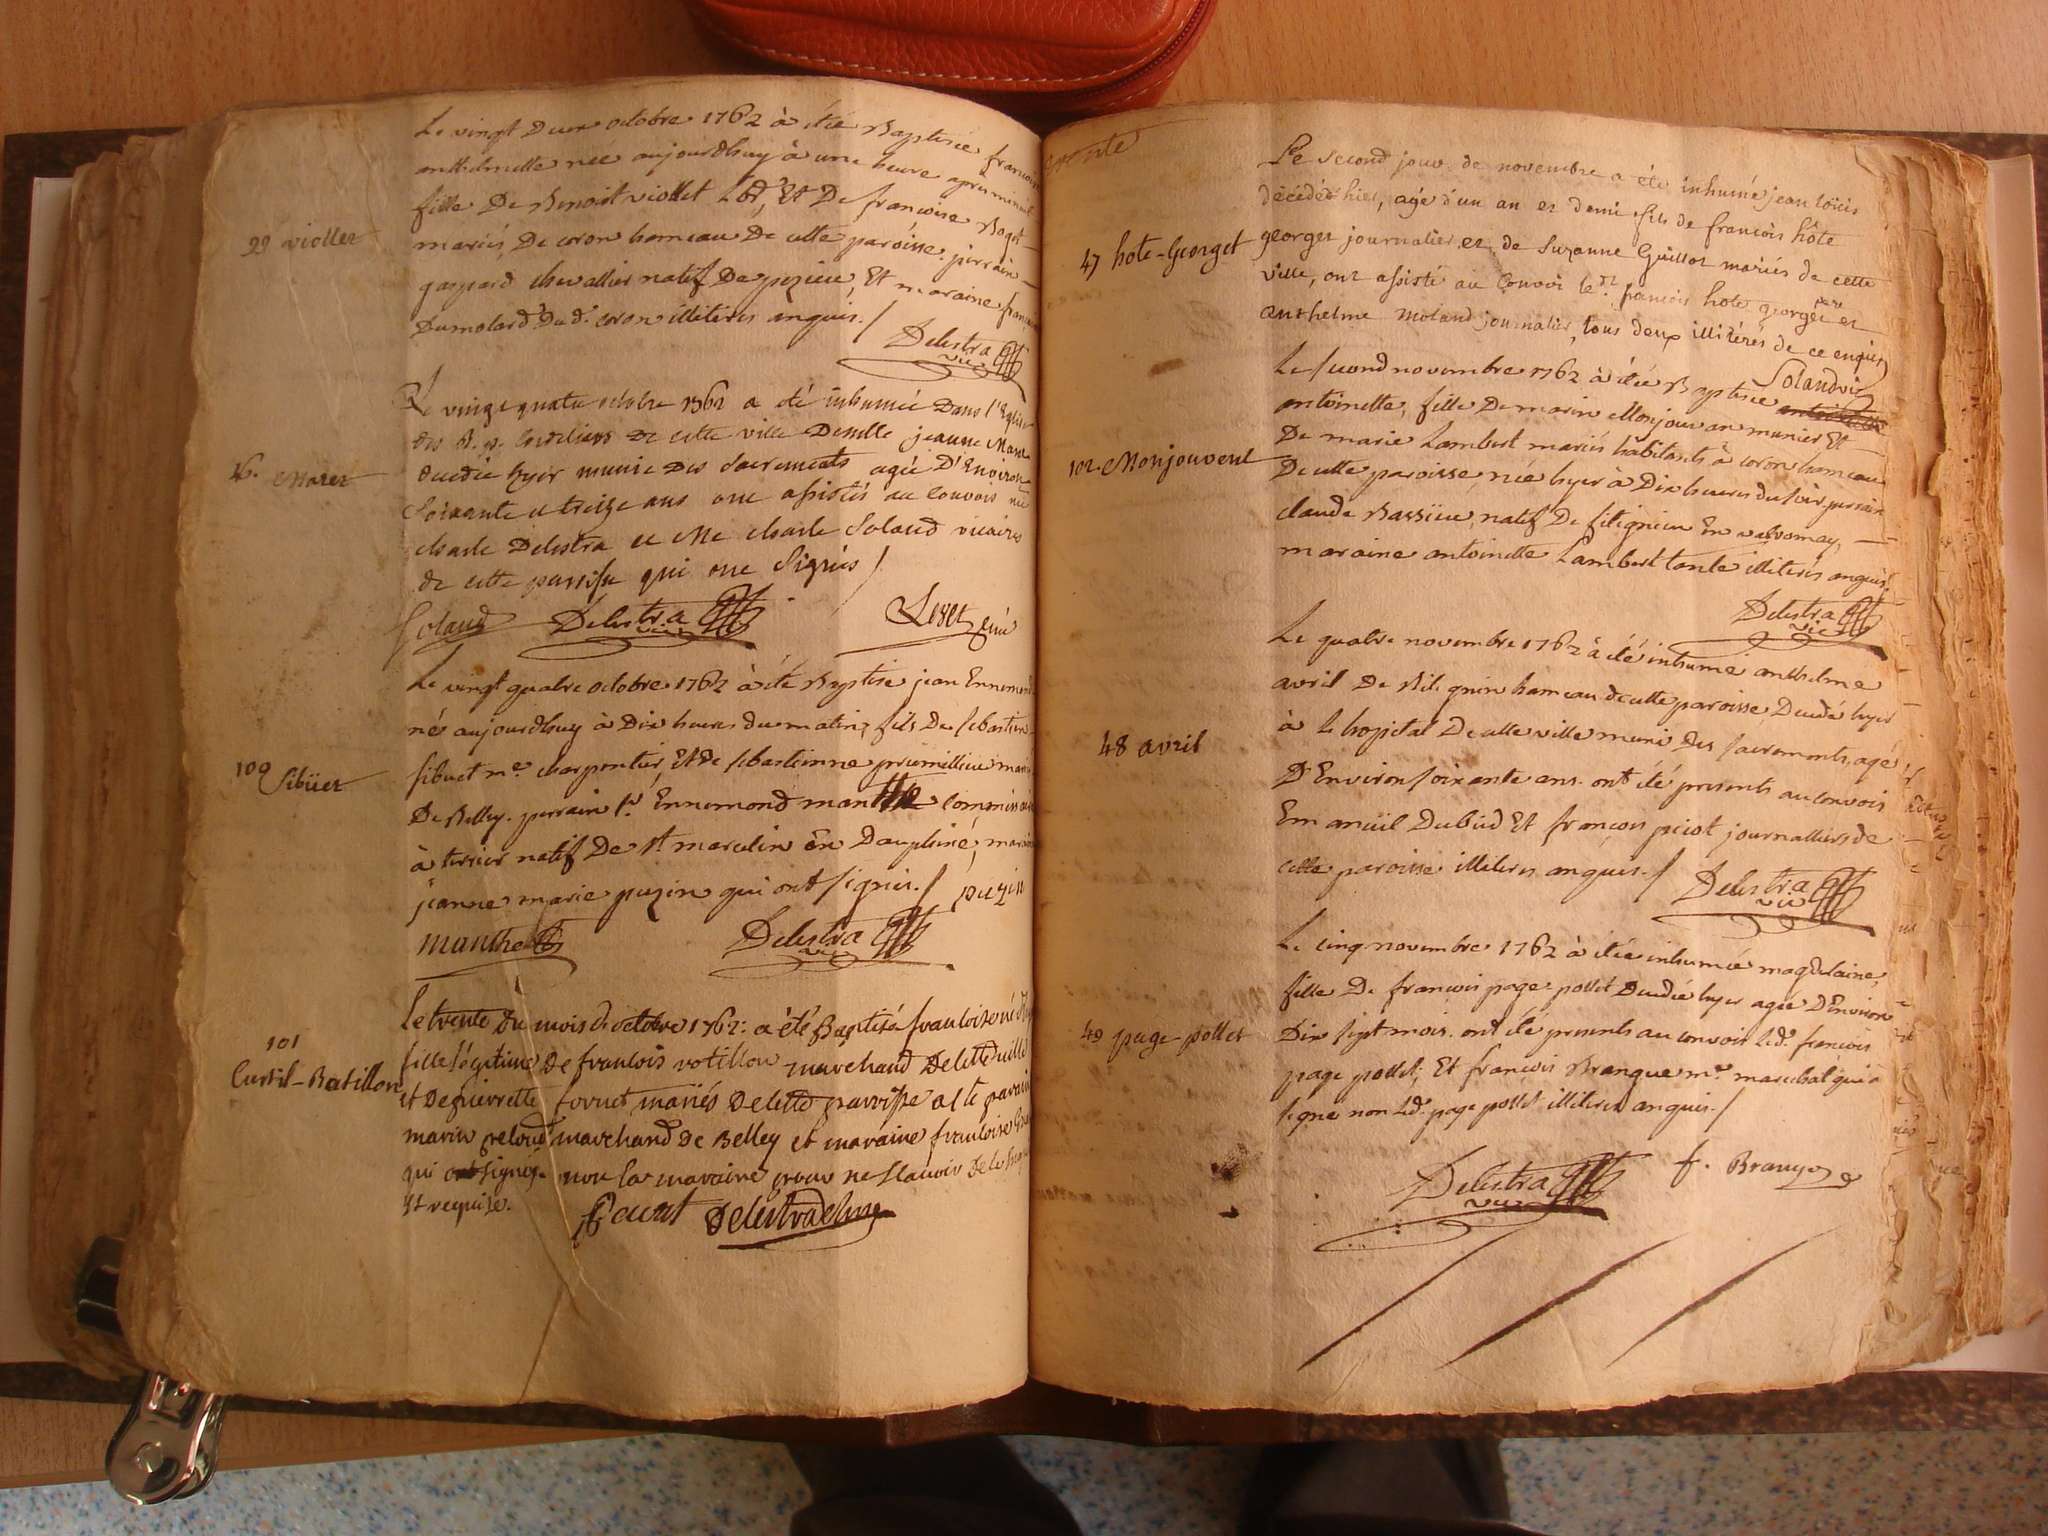 Le vingt Deux octobre 1762 à étée Baptisée francoise
anthelmette née aujourdhuy à une heure apres minuit
fille De Benoist viollet Lbr, Et De françoise Bogot
99 viollet
mariés, De coron hameau De cette paroisse. pirrain
gaspard chevallier natif De pezieu, Et maraine
Dumolard Du d. coron illiterés enquis. /
Delestra vic
Le vingt quatre octobre 1762 a été inhumée Dans l'Eglise
des R. p. Cordeliers de cette ville Demlle jeanne Marie
46. Maret
decedée hyer munie Des Sacrements agée D'Environ
Soixante et treize ans ont assistés au Convois
charle Delestra et Me charle Soland vicaires
de cette parroisse qui ont Signés /
Soland Delestra vic
Le vingt quatre octobre 1762 à été Baptisé jean Ennemond
nés aujourdhuy à Dix heures du matin, fils De sebastien
100 Sibüet
sibuet me. charpentier, Et de sebastienne premillieu mariés
De Belley. perrain sr. Ennemond manthe commissaire
à terrier natif De st. marcelin En Dauphiné, maraine
jeanne marie puzin qui ont signés. / puzin
manthe Delestra vic
Le trente Du mois D octobre 1762: a été Baptisée francoise née
fille légitime De francois votillon marchand De cette ville
101
Curtil-Batillon
et De pierrette Cornet mariés De cette parroisse a été parain
marin peloud marchand De Belley et maraine francoise
qui ont signé. non la maraine pour ne scavoir De ce
et requise.
47 hote-Georget
Le second jour de novembre a été inhumé jean loüis
décédé hier, agé d'un an et demi fils de francois hôte
georget journalier et de Suzanne Guillot mariés de cette
ville, ont assisté au Convoi le dt. francois hote georget père et
anthelme moland journalier, tous deux illitérés de ce enquis
Soland vic
Le second novembre 1762 à étée Baptisée
antoinette, fille De marin Monjouvan munier Et
De marie Lambert mariés habitants à coron hameau
102 Monjouvent
De cette paroisse, née hyer à Dix heures du soir, perrain
claude Bassieu natif De fitignieu En valromay,
maraine antoinette Lambert tante illiterés enquis.
Delestra vic
Le quatre novembre 1762 à été inhumé anthelme
avril De Bilignin hameau de cette paroisse Decedé hyer
48 avril
à l'hopital De cette ville muni Des sacrements, agé
D'Environ soixante ans. ont été presents au convois
Emanüil Dubud Et françois picot journalliers de
cette paroisse illiterés enquis. /
Delestra vic
Le cinq novembre 1762 à étée inhumée magdelaine,
fille De francois page pollet Decedée hyer agée D'Environ
49 page-pollet
Dix sept mois. ont été presents au convois led. francois
page pollet, Et françois Brangue me. marechal qui a
signé non led. page pollet illiteré enquis. /
Delestra vic